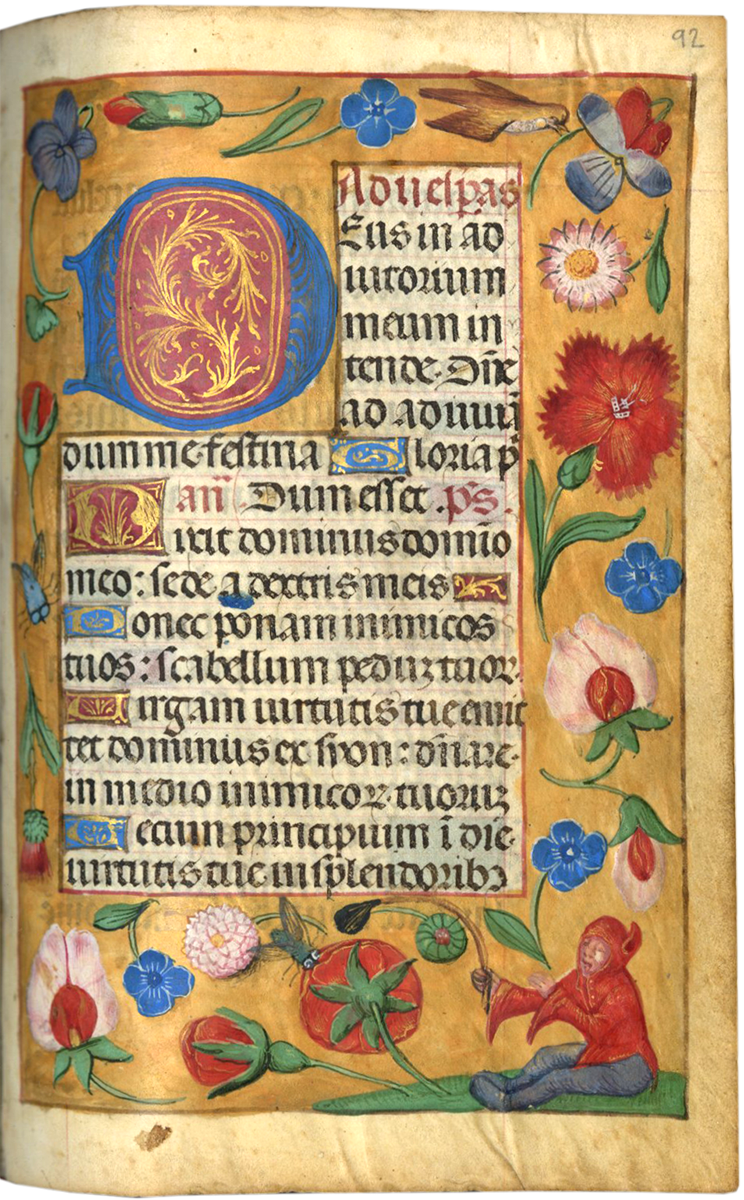 92
Ad vesp̄as
Deus in ad
iutorium
meum in
tende. Dn̄e
ad adiuuā
dum me festina Gloria p̄
an̄ Dum esset . ps̄.
Dixit dominus domīo
meo : sede a dextris meis
Donec ponam inimicos
tuos : scabellum peduꝫ tuor.
Virgam uirtutis tue emit
tet dominus ex syon : dn̄are.
in medio inimicoꝝ tuoruꝫ
Tecum principium ī die.
uirtutis tue in sp̄lendoribꝫ